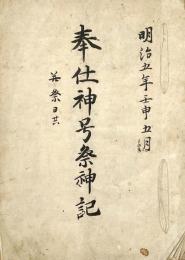 明治五年壬申五月
奉仕神号祭神記
並祭日共